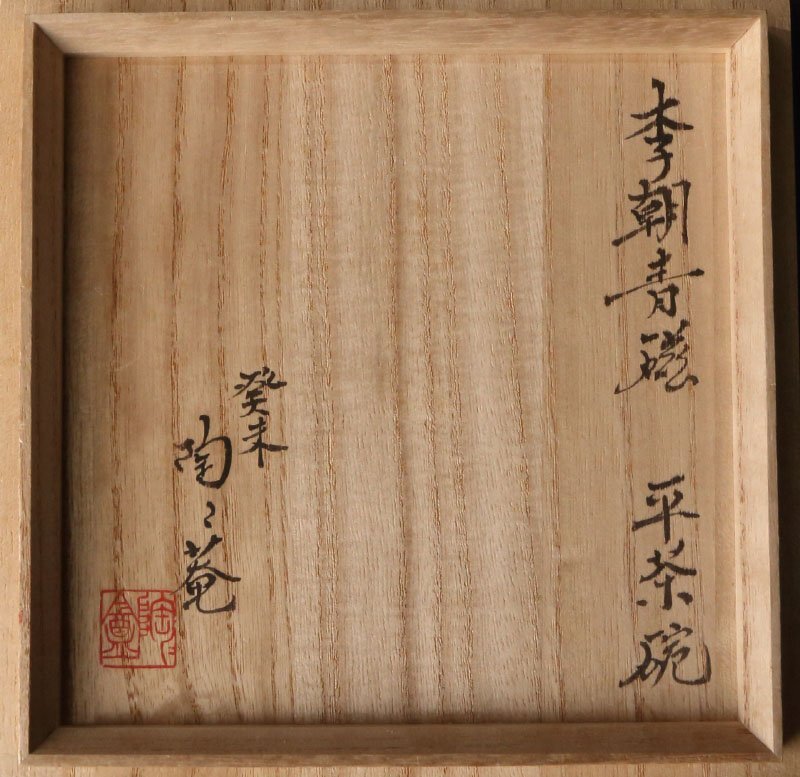 李朝青磁 平茶碗
癸未
陶々菴